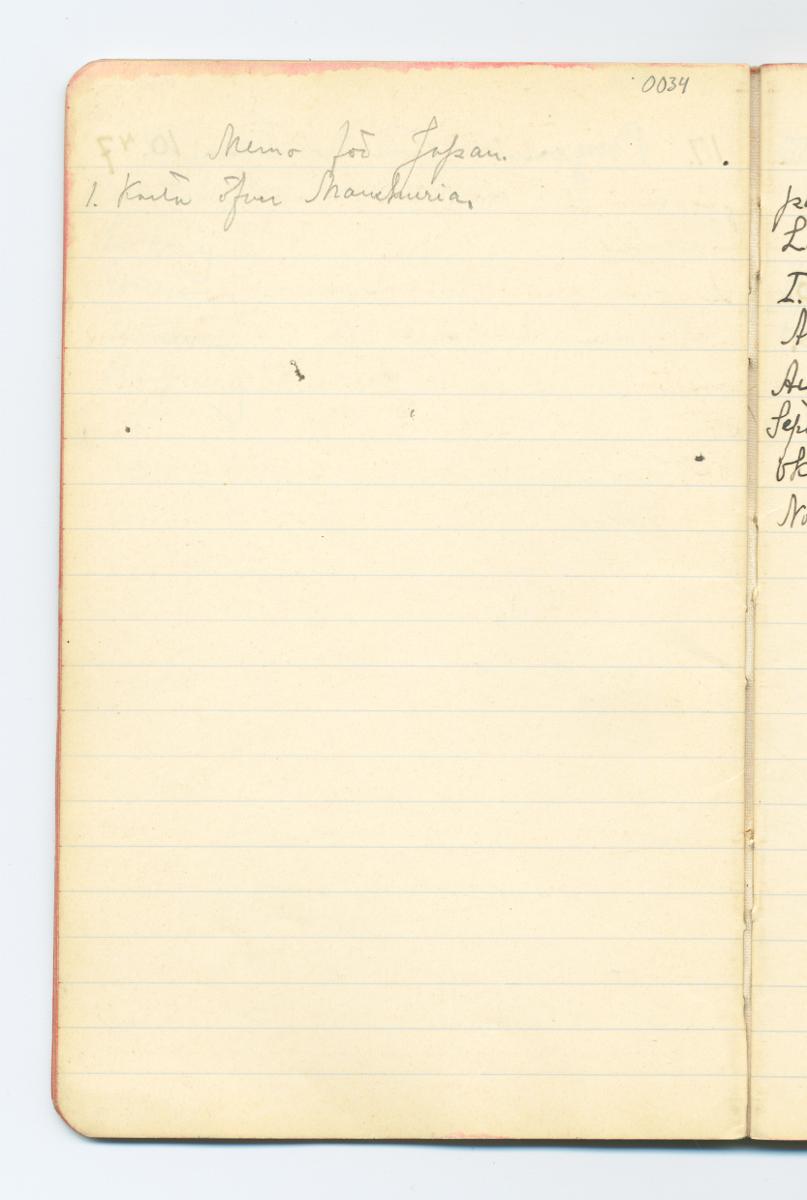 0034
Memo för Japan.
1. Karta öfver Manchuria.
L
I.
A
Au
Sep
Ok
No